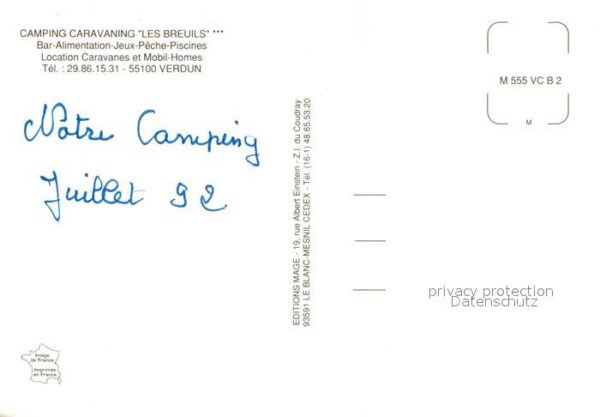 CAMPING CARAVANING "LES BREUILS" ***
Bar-Alimentation-Jeux-Pêche-Piscines
Location Caravanes et Mobil-Homes
Tél. : 29.86.15.31 - 55100 VERDUN
Notre Camping
Juillet 92
EDITIONS MAGE - 19, rue Albert Einstein - Z.I. du Coudray
93591 LE BLANC-MESNIL CEDEX - Tél. (16-1) 48.65.53.20
M 555 VC B 2
M
privacy protection
Datenschutz
Image
de France
Imprimée
en France